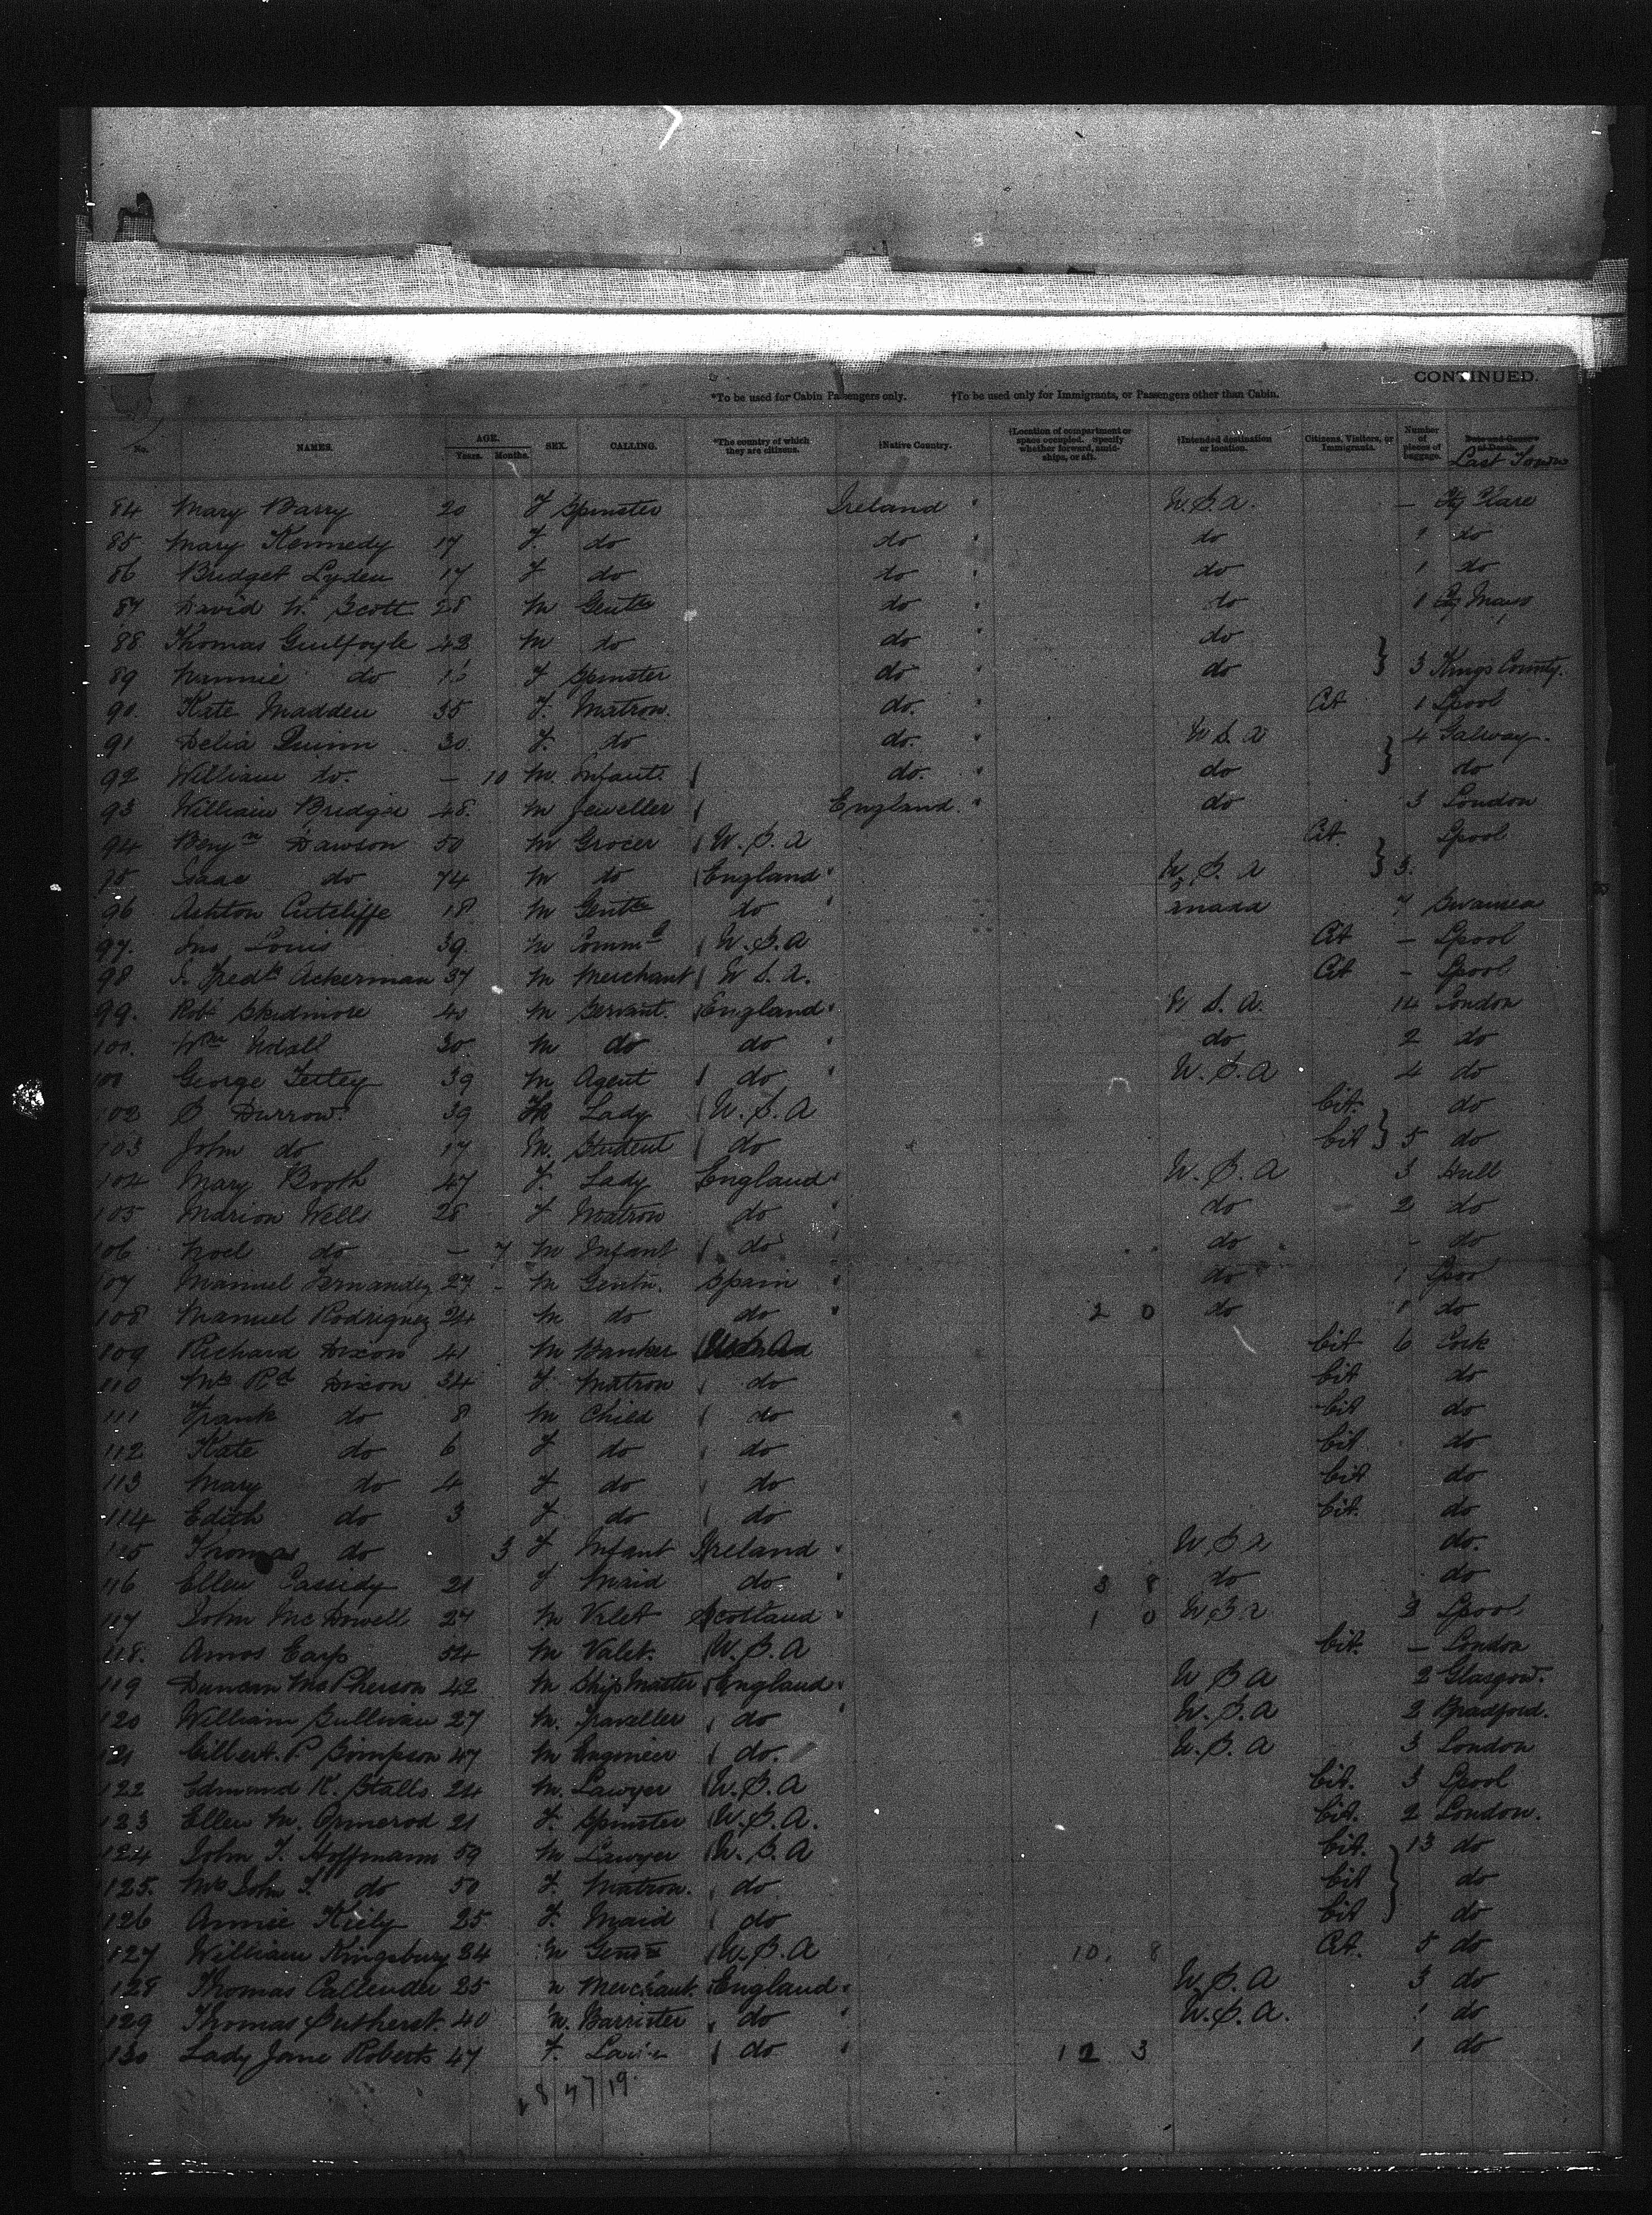 CONTINUED.
*To be used for Cabin Passengers only. †To be used only for Immigrants, or Passengers other than Cabin.
No. NAMES. AGE. Years. Months. SEX. CALLING. *The country of which they are citizens. †Native Country. †Location of compartment or space occupied. Specify whether forward, amidships, or aft. †Intended destination or location. Citizens, Visitors, or Immigrants. Number of pieces of baggage. Date and Cause of Death. Last Town
84 Mary Barry 20 F Spinster Ireland U.S.A. — Clare
85 Mary Kennedy 17 F. do do do 1 do
86 Bridget Lyden 17 F do do do 1 do
87 David W. Scott 28 M Gentn do do 1 Cy Mayo
88 Thomas Guilfoyle 42 M do do do
89 Nannie do F Spinster do do } 3 Kings County.
90. Kate Madden 35 F. Matron. do. Cit 1 Lpool
91 Delia Quinn 30. F. do do. U S A 4 Galway.
92 William do. — 10 M. Infant. do. do } do
93 William Bridge 48. M Jeweller England. do 3 London
94 Benjn Dawson 50 M Grocer U.S.A Cit. Lpool
95 Isaac do 74 M do England U.S.A } 3.
96 Ashton Cutcliffe 18 M Gentn do 7 Swansea
97. Jno Louis 39. M Comml U.S.A Cit — Lpool
98 S. Fredk Ackerman 37 M Merchant U S.A. Cit - Lpool
99. Robt Skidmore 40 M Servant. England U S.A. 14 London
100. Wm Udall 30 M do do do 2 do
101 George Tetley 39 M Agent do U.S.A 4 do
102 S Durrow. 39 F Lady U.S.A Cit. do
103 John do 17 M. Student do Cit } 5 do
104 Mary Booth 47 F. Lady England U.S.A 3 Hull
105 Marion Wells 28 F Matron do do 2 do
106 Noel do — 7 M Infant do do - do
107 Manuel Fernandez 27 - M Gentn. Spain do 1 Lpool
108 Manuel Rodriguez 24 M do do 2 0 do 1 do
109 Richard Dixon 41 M Banker Cit 6 Cork
110 Mrs Rd Dixon 34 F. Matron do Cit do
111 Frank do 8 M Child do Cit do
112 Kate do 6 F do do Cit do
113 Mary do 4 F do do Cit do
114 Edith do 3 F do do Cit. do
115 do 3 F Infant Ireland U S A do.
116 Ellen Cassidy 21 F Maid do 3 8 do do
117 John McDowell 27 M Valet Scotland 1 0 U S A 2 Lpool
118. Amos Earp 54 M Valet. U.S.A Cit. — London
119 Duncan McPherson 42 M Ship Master England U S A 2 Glasgow.
120 William Sullivan 27 M. Traveller do U.S.A 2 Bradford.
121 Gilbert. P Simpson 47 M Engineer do. U.S.A 3 London
122 Edmund K. Stalls 24 M. Lawyer U.S.A Cit. 3 Lpool
123 Ellen M. Ormerod 21 F. Spinster U.S.A. Cit. 2 London.
124 John J. Hoffmann 59 M Lawyer U.S.A Cit. 13 do
125. Mrs John J. do 50 F. Matron. do Cit } do
126 Annie Kiely 25. F. Maid do Cit do
127 William Kingsbury 34 M Gentn U.S.A 10. 8 Cit. 5 do
128 Thomas Callender 25 M Merchant. England U.S.A 3 do
129 Thomas 40 M. Barrister do U.S.A. 1 do
130 Lady Jane Roberts 47 F. do 12 3 1 do
8/47/19